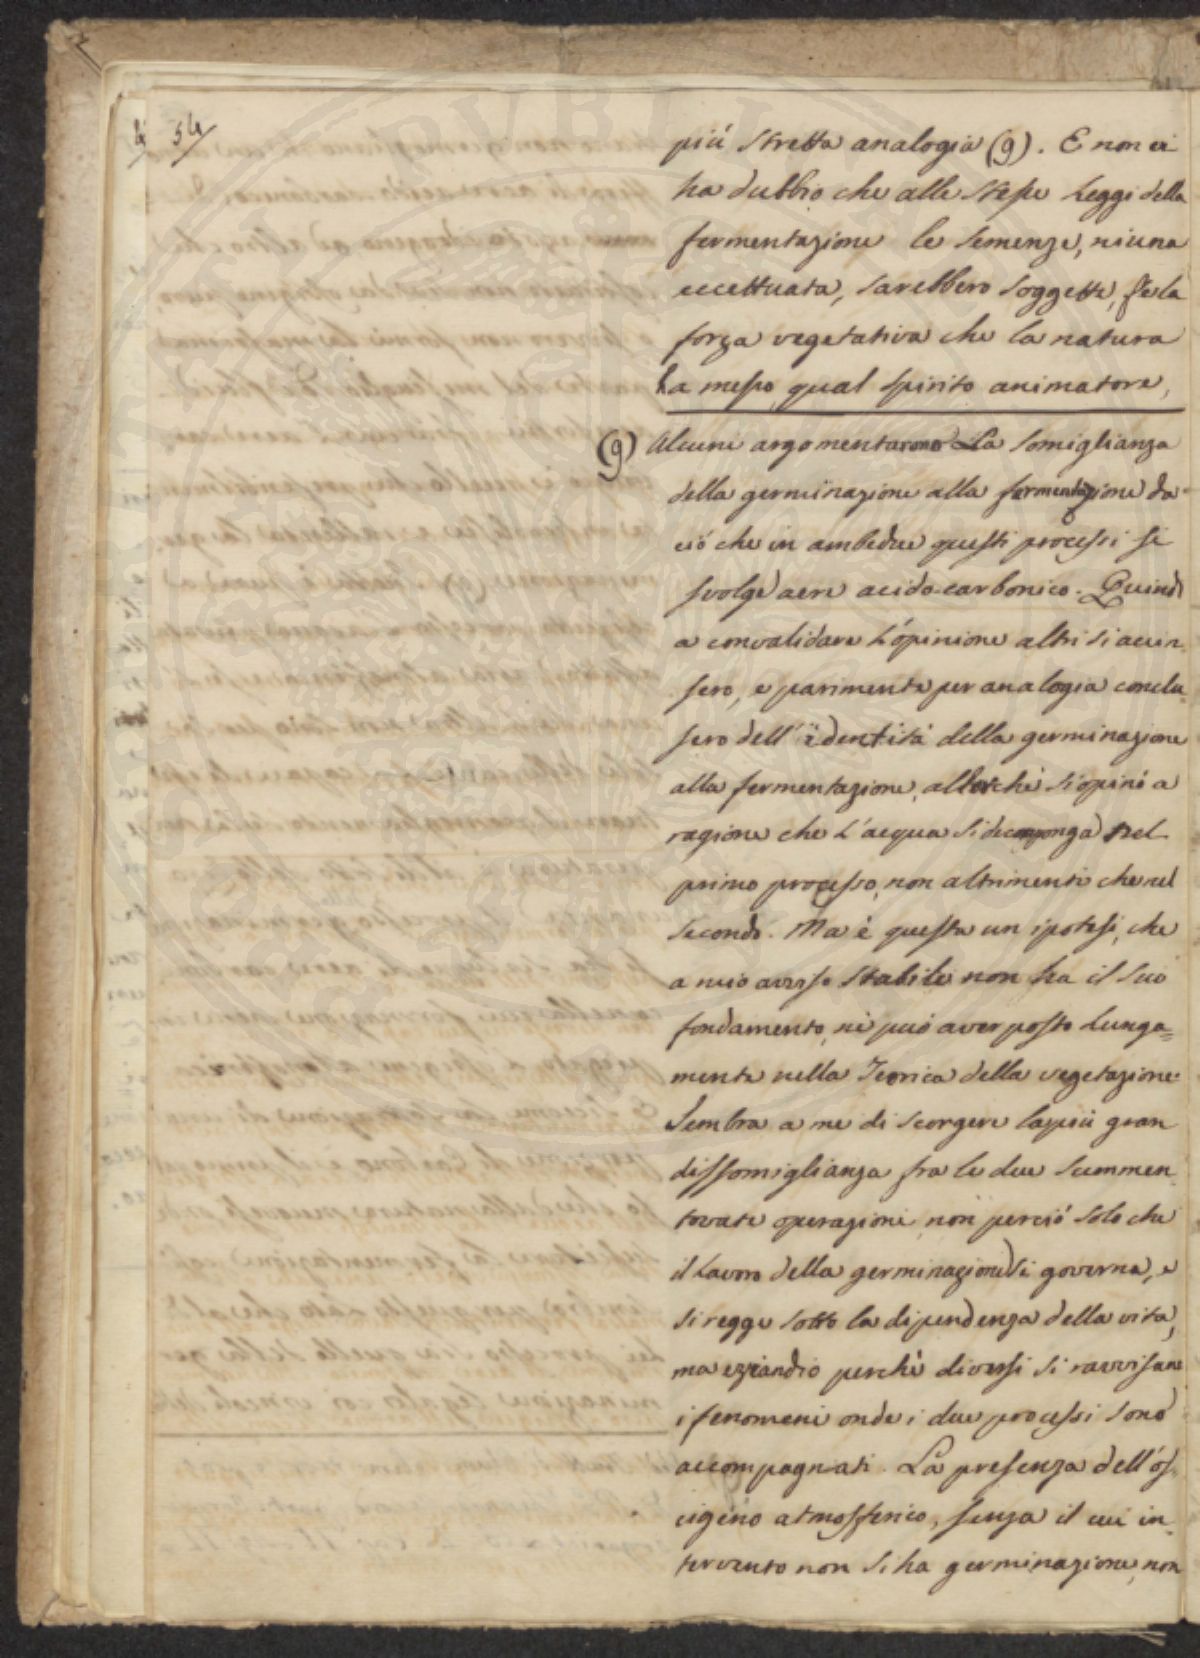 54
più stretta analogia (9). E non vi
ha dubbio che alle stesse Leggi della
fermentazione le semenze, niuna
eccettuata, sarebbero soggette, se la
forza vegetativa che la natura
ha messo qual spirito animatore,
(9) Alcuni argomentarono La somiglianza
della germinazione alla fermentazione da
ciò che in ambedue questi processi si
svolge aere acido-carbonico. Quindi
a convalidare L'opinione altri si accin-
sero, e parimente per analogia conclu-
sero dell'identità della germinazione
alla fermentazione, allorchè si opinò a
ragione che L'acqua si decomponga nel
primo processo, non altrimenti che nel
secondo. Ma è questa un ipotesi, che
a mio avviso stabile non ha il suo
fondamento, nè può aver posto Lunga=
mente nella Teorica della vegetazione.
Sembra a me di scorgere la più gran
dissomiglianza fra le due summen-
tovate operazioni, non perciò solo che
il Lavoro della germinazione si governa, e
si regge sotto la dipendenza della vita,
ma eziandio perchè diversi si ravvisano
i fenomeni onde i due processi sono
accompagnati. La presenza dell'os-
cigeno atmosferico, senza il cui in-
tervento non si ha germinazione, non